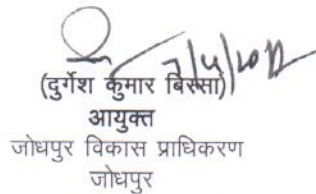 (दुर्गेश कुमार बिस्सा)
आयुक्त
जोधपुर विकास प्राधिकरण
जोधपुर